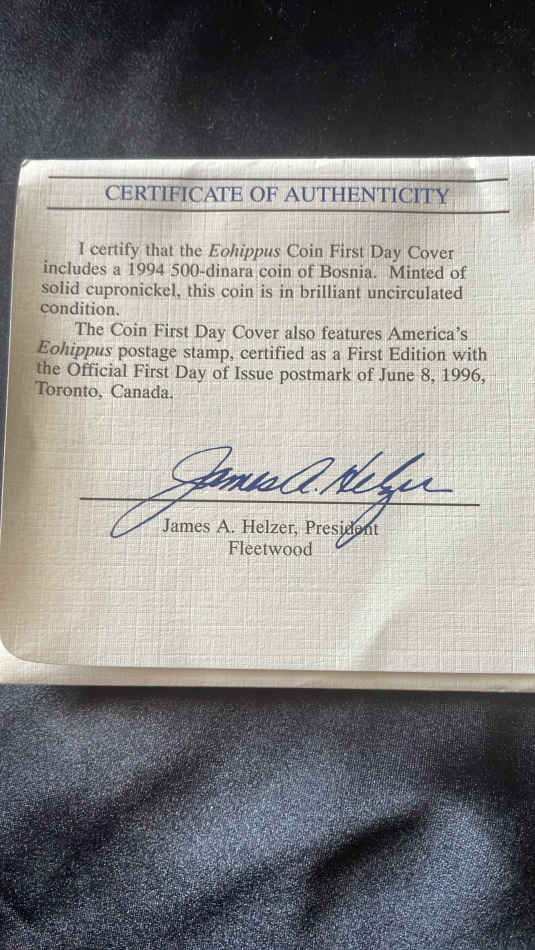 CERTIFICATE OF AUTHENTICITY
I certify that the Eohippus Coin First Day Cover
includes a 1994 500-dinara coin of Bosnia. Minted of
solid cupronickel, this coin is in brilliant uncirculated
condition.
The Coin First Day Cover also features America's
Eohippus postage stamp, certified as a First Edition with
the Official First Day of Issue postmark of June 8, 1996,
Toronto, Canada.
James A. Helzer
James A. Helzer, President
Fleetwood